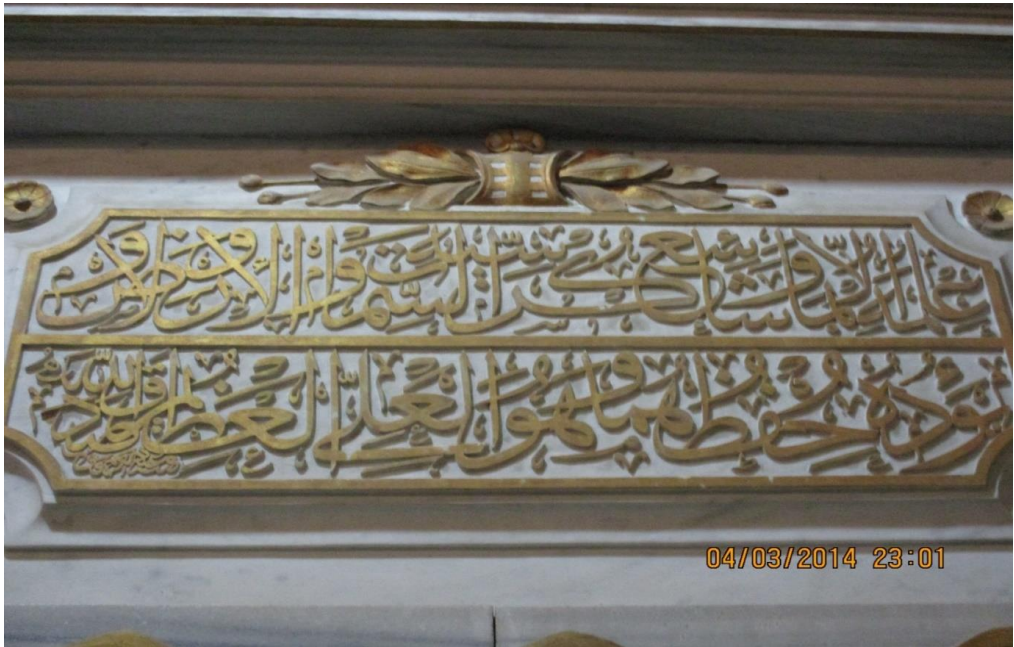 علمه إلا بما شاء وسع كرسيه السموات والأرض ولا
يؤده حفظهما وهو العلي العظيم صدق الله
04/03/2014 23:01